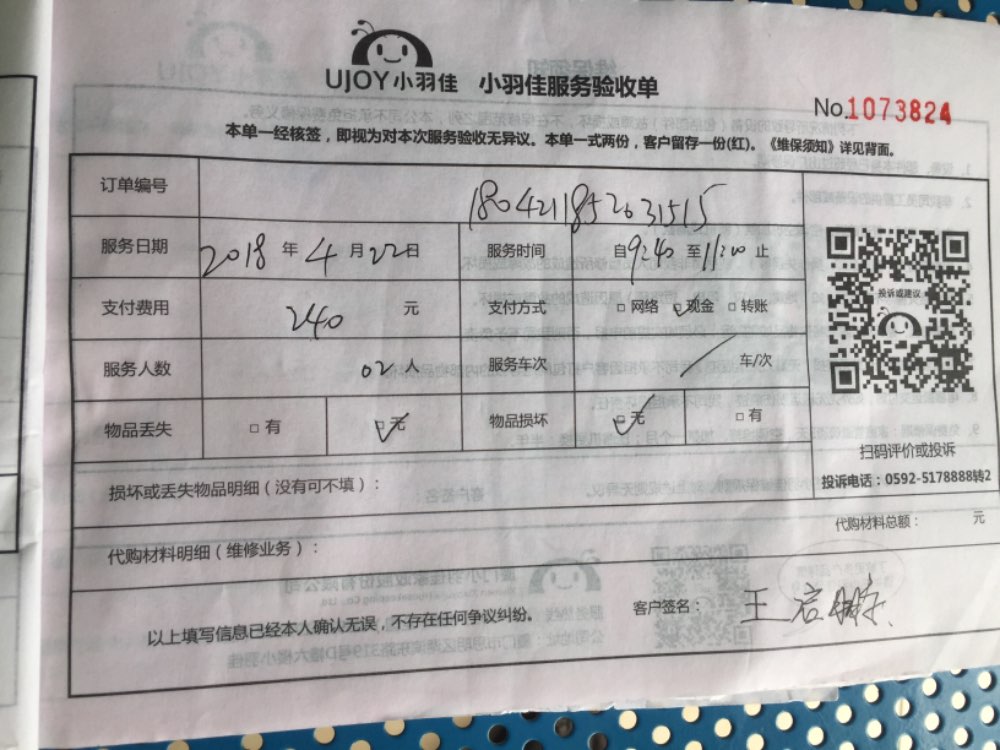 UJOY小羽佳 小羽佳服务验收单
No.1073824
本单一经核签，即视为对本次服务验收无异议。本单一式两份，客户留存一份(红)。《维保须知》详见背面。
订单编号 1804211852631515
服务日期 2018 年 4 月 22 日 服务时间 自 9:40 至 11:20 止
支付费用 240 元 支付方式 □ 网络 ☑ 现金 □ 转账
服务人数 02 人 服务车次 / 车/次
物品丢失 □ 有 ☑ 无 物品损坏 ☑ 无 □ 有
投诉或建议
扫码评价或投诉
投诉电话：0592-5178888转2
损坏或丢失物品明细（没有可不填）：
代购材料总额： 元
代购材料明细（维修业务）：
以上填写信息已经本人确认无误，不存在任何争议纠纷。
客户签名： 王